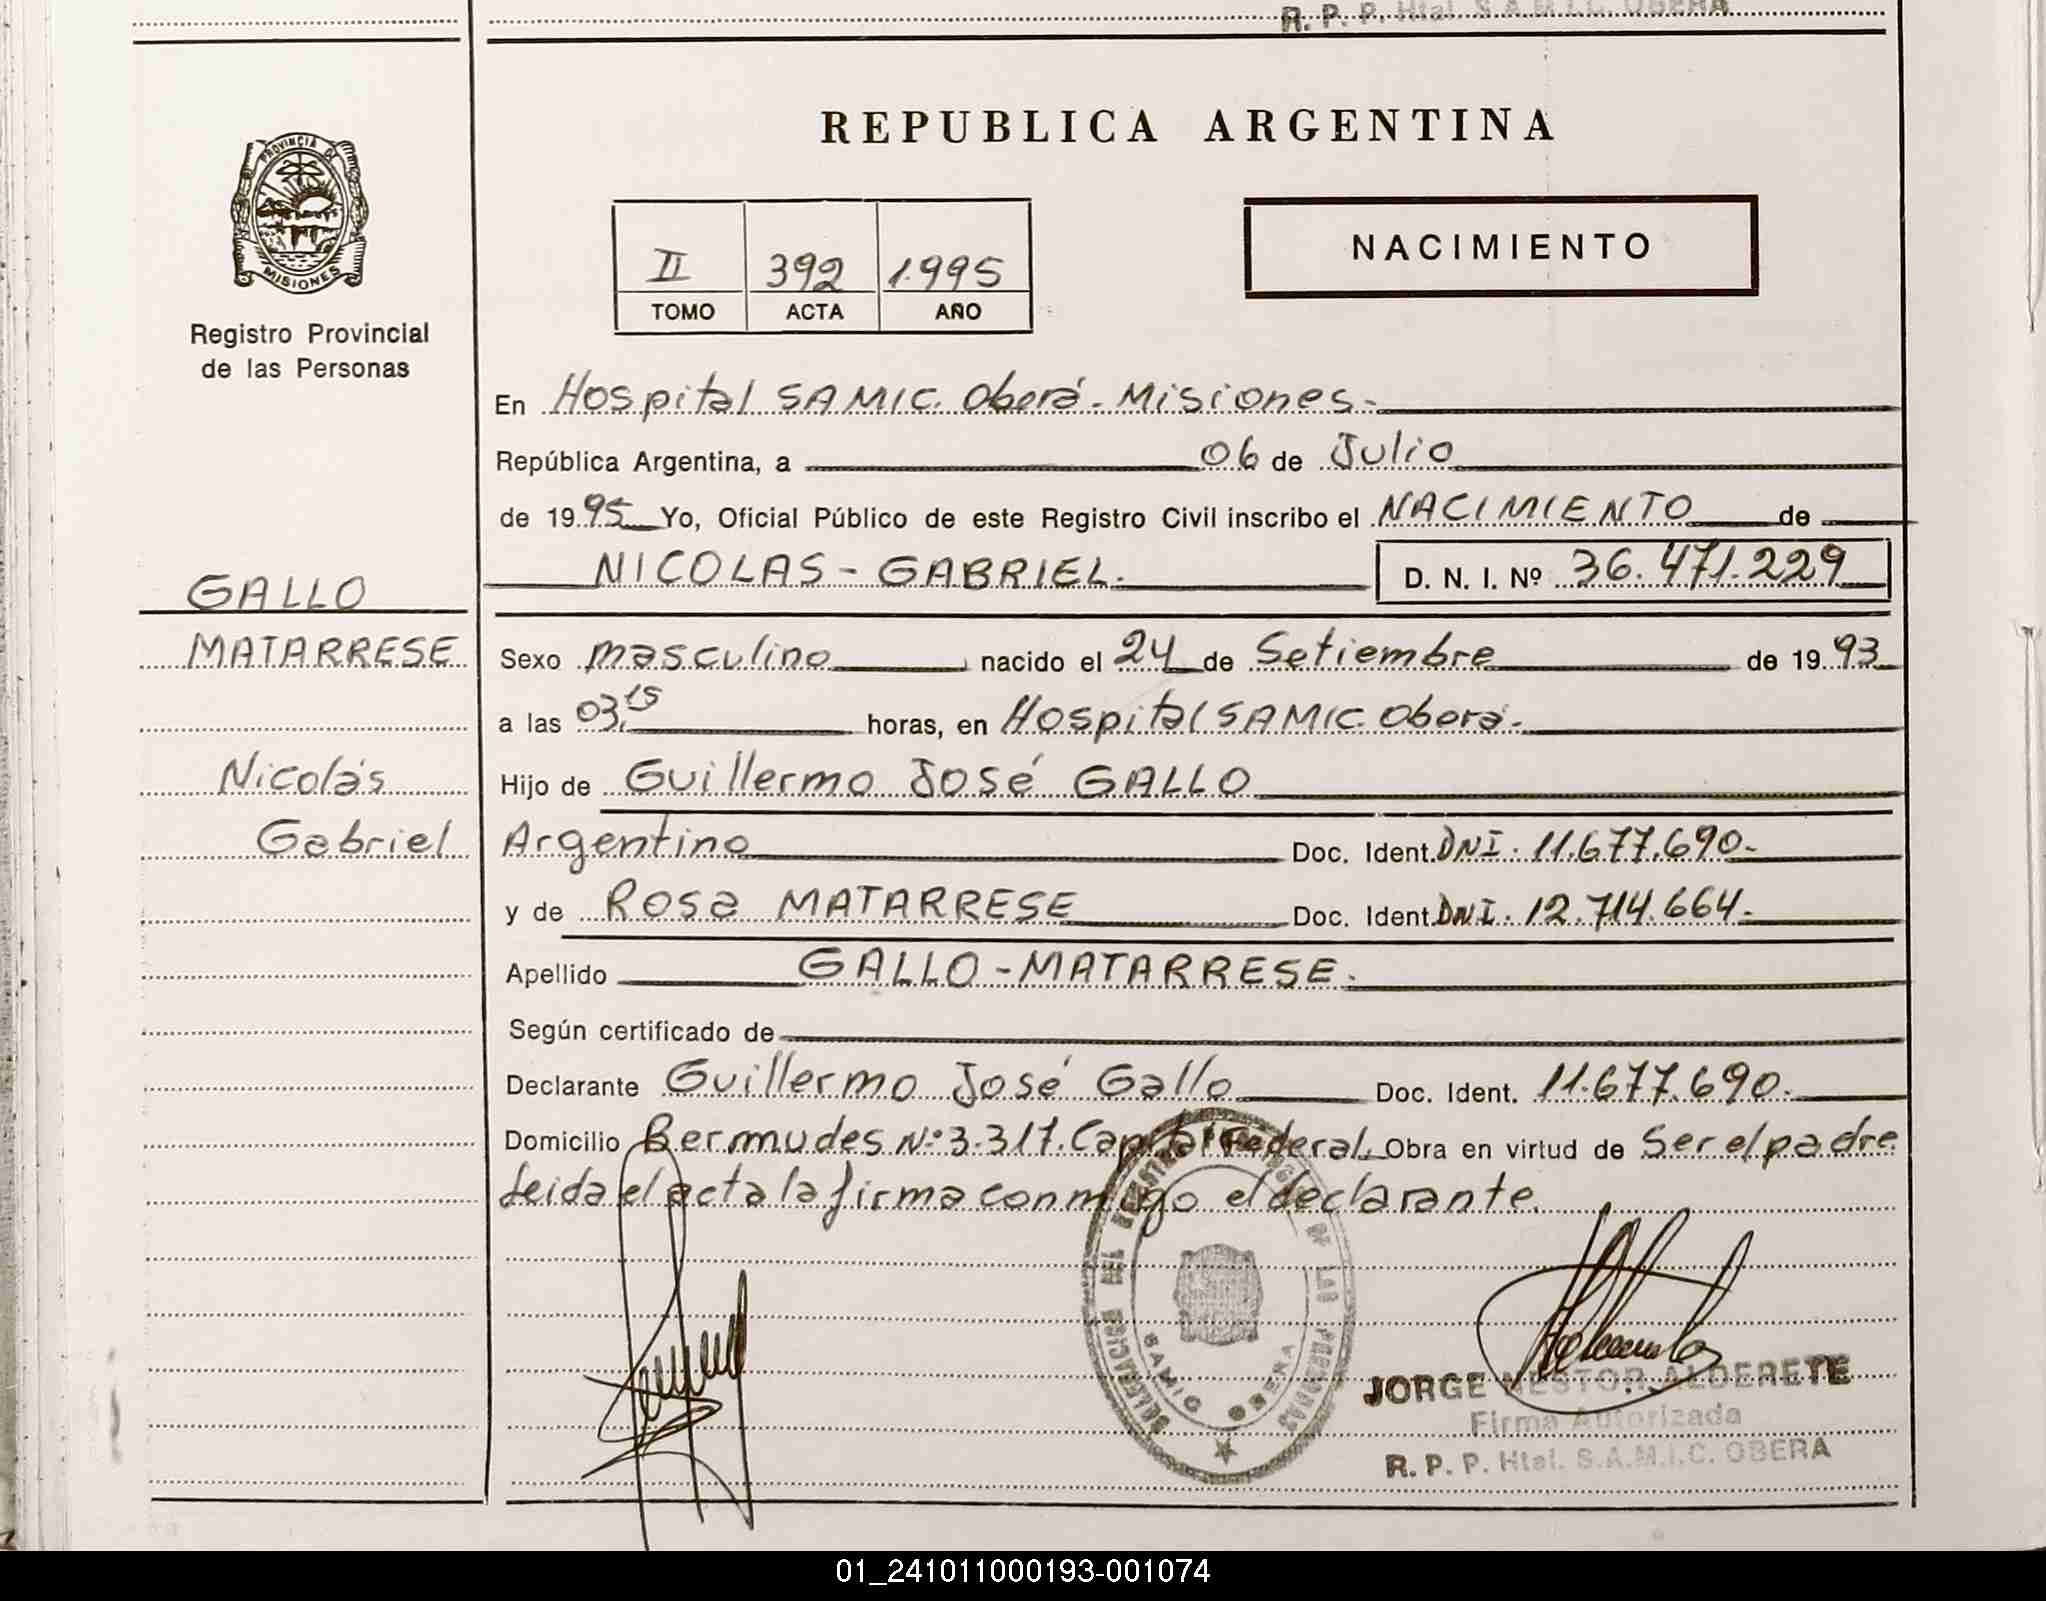 R. P. P. Htal. S.A.M.I.C. OBERA
REPUBLICA ARGENTINA
PROVINCIA DE
MISIONES
Registro Provincial
de las Personas
II 392 1.995
TOMO ACTA AÑO
NACIMIENTO
En Hospital SAMIC. Oberá - Misiones.-
República Argentina, a 06 de Julio
de 1995 Yo, Oficial Público de este Registro Civil inscribo el NACIMIENTO de
NICOLAS - GABRIEL. D. N. I. Nº 36.471.229
GALLO
MATARRESE
Nicolás
Gabriel
Sexo masculino nacido el 24 de Setiembre de 1993
a las 03,15 horas, en Hospital SAMIC. Oberá.-
Hijo de Guillermo José GALLO
Argentino Doc. Ident. DNI. 11.677.690.-
y de Rosa MATARRESE Doc. Ident. DNI. 12.714.664.-
Apellido GALLO - MATARRESE.-
Según certificado de
Declarante Guillermo José Gallo Doc. Ident. 11.677.690.-
Domicilio Bermudes Nº 3.317. Capital Federal. Obra en virtud de Ser el padre
Leida el acta la firma conmigo el declarante.
DELEGACION DEL REGISTRO PROVINCIAL DE LAS PERSONAS
SAMIC OBERA
JORGE NESTOR ALDERETE
Firma Autorizada
R. P. P. Htal. S.A.M.I.C. OBERA
01_241011000193-001074